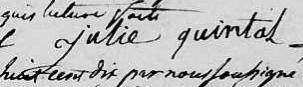 quis lecture faite
Julie quintal
huit cent dix par nous soussigné